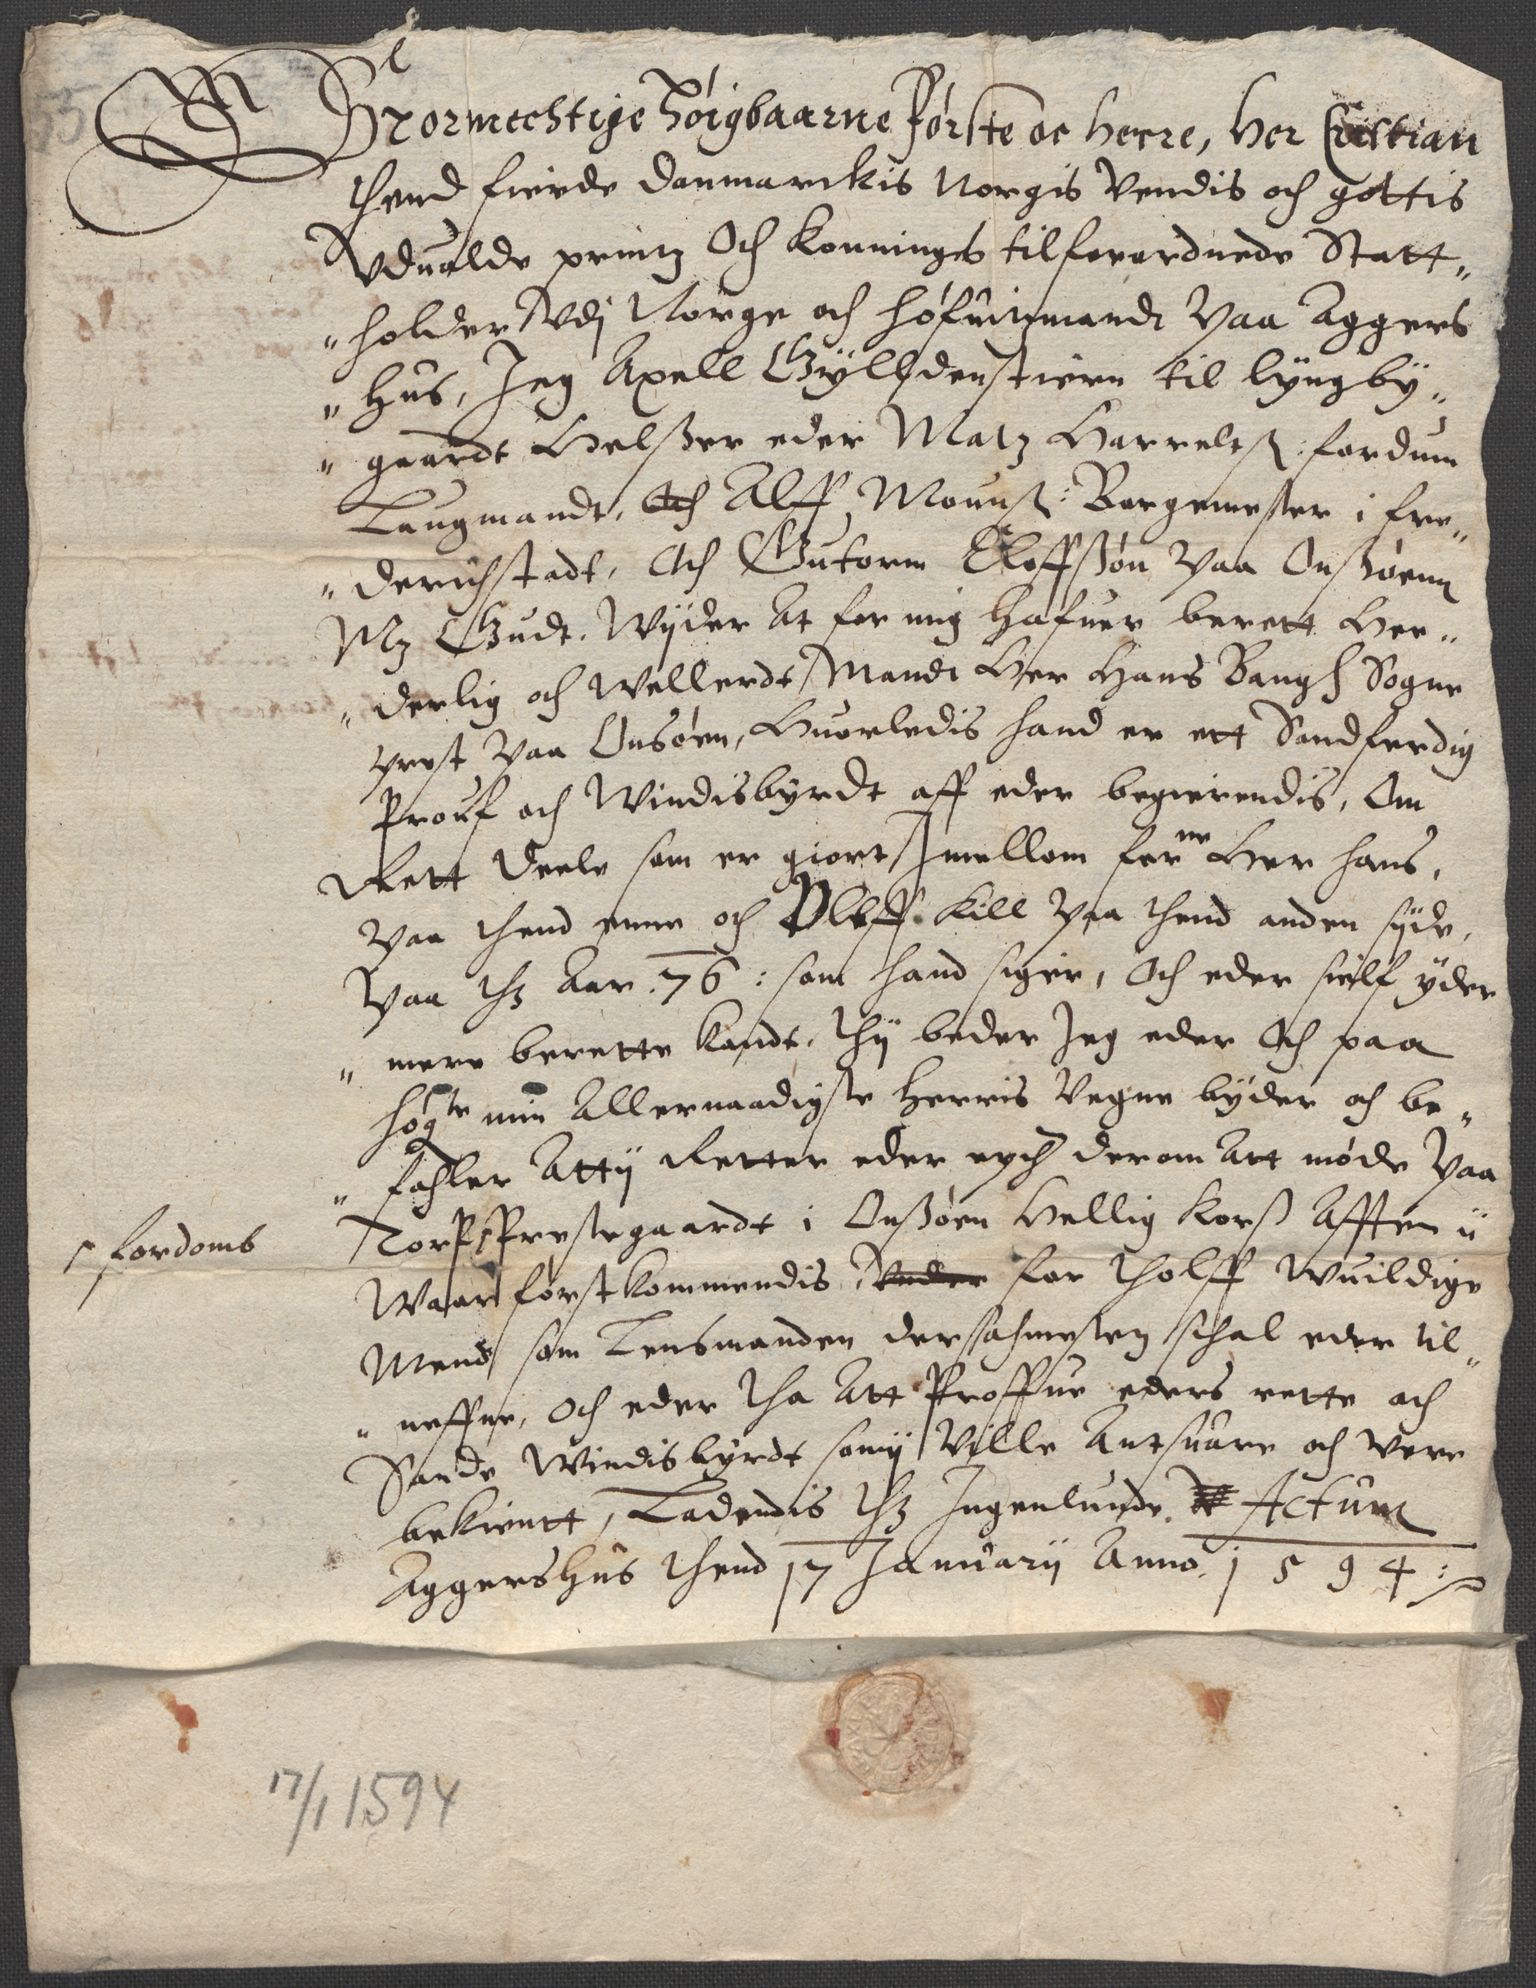 Stormechtige Høigbaarne Første oc Herre, Her Cristian
thend fierde Danmarckis Norgis Vendis och gottis
Vduolde printz Och Konninges tilforordnede Statt„
„holder Vdj Norge och høfuitzmandt paa Aggers
„Hus, Jeg Axell Gÿlldenstiern til lÿngbÿ„
„gaardt Helsser eder Matz Harreltß: fordum
Laugmandt, Och Alff Mounß: Borgemester i fre„
„derichstadt, Och Gutorm Eloffssøn paa Onssøenn
Mz Gudt. Wijder At for mig hafuer berett Her„
„derlig och Wellerdt Mandt Her Hans Bangs Sogne
prest paa Onsøen, Huorledis hand er ett Sandferdig
Prouf och Windisbyrdt aff eder begierendis, Om
Rett Deele som er giort Jmellom for ne Her Hans,
paa thend enne och Oleff Kill paa thend anden sijde,
paa thz Aar. 76: som hand siger, Och eder sielf ÿder
„mere berette Kandt, Thij beder Jeg eder Och paa
høg te min Allernaadigste Herris Vegne bÿder och be„
„fahler Attij Retter eder epth derom Att møde paa
Torp Prestegaardt i Onssøen Hellig Korß Afften ii
fordoms
Waar førstkommendis, Vnder for tholff Wuildige
Mend som Lensmanden dersahmesten schal eder til„
„neffne, Och eder tha Att Proffue eders rette och
Sande Windisbyrdt somij Ville Antsuare och Vere
bekientt, Ladendis thz Jngenlunde Actum
AggersHus thend 17 Januarij Anno. 1594:
17/1 1594